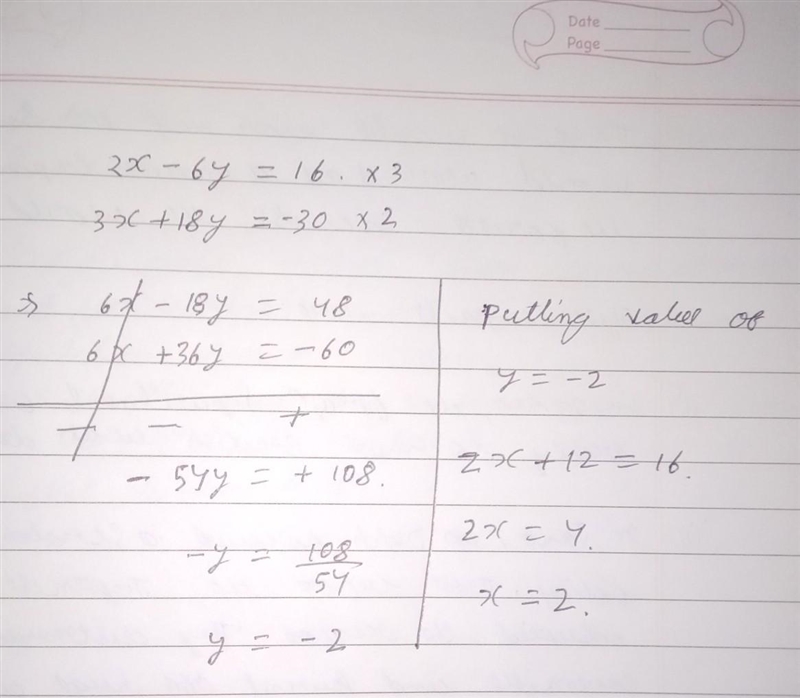 Date
Page
2x - 6y = 16. x 3
3x + 18y = -30 x 2
⇒ 6x - 18y = 48
6x + 36y = -60
- - +
- 54y = + 108.
-y = 108/54
y = -2
Putting value of
y = -2
2x + 12 = 16.
2x = 4.
x = 2.